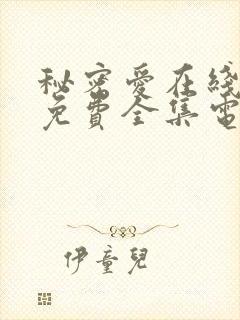 秘密愛在綫
免費全集電
伊童兒